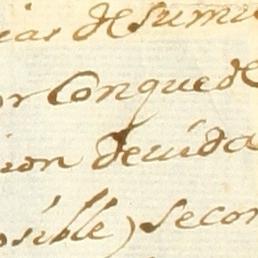 icar de sumi
or Conque de
cion devida
osible) secon